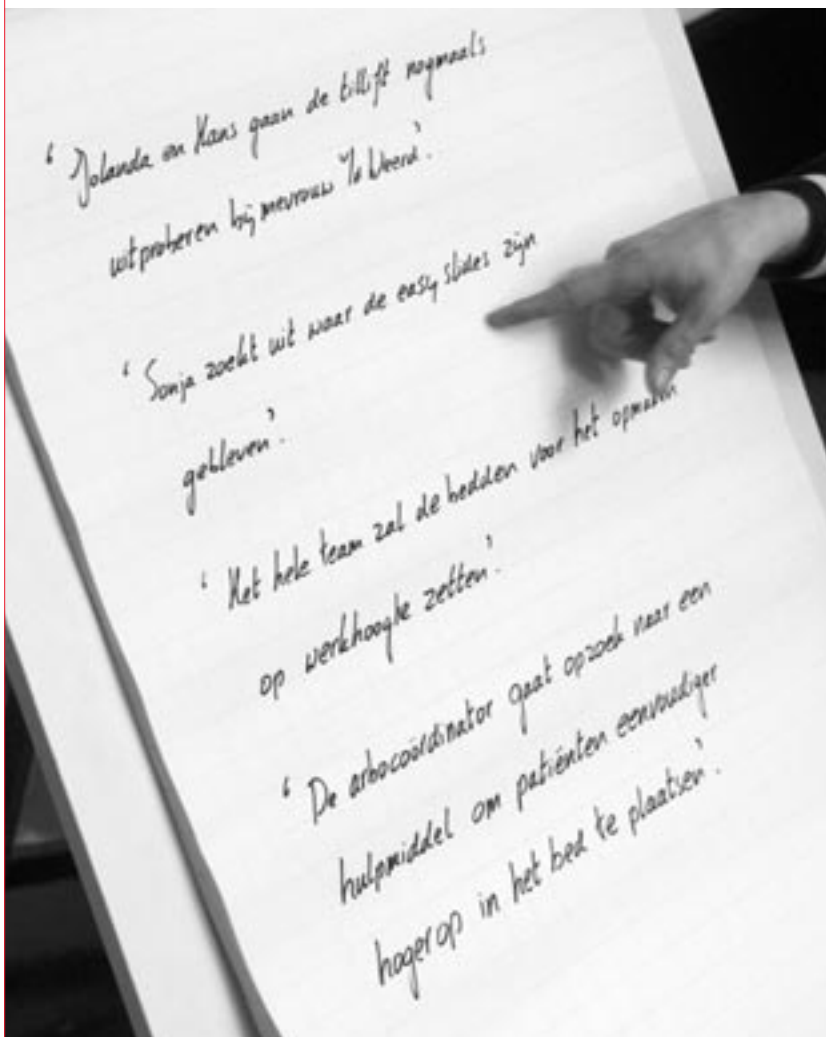 ' Jolanda en Hans gaan de tillift nogmaals
uitproberen bij mevrouw Weerd'.
' Sonja zoekt uit waar de easy slides zijn
gebleven'.
' Het hele team zal de bedden voor het opmaken
op werkhoogte zetten'.
' De arbocoördinator gaat opzoek naar een
hulpmiddel om patiënten eenvoudiger
hogerop in het bed te plaatsen'.